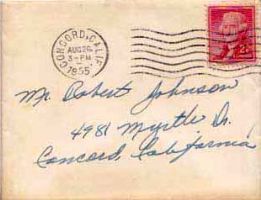 CONCORD, CALIF.
AUG 26
3-PM
1955
2¢
Mr. Robert Johnson
4981 Myrtle Dr.
Concord, California